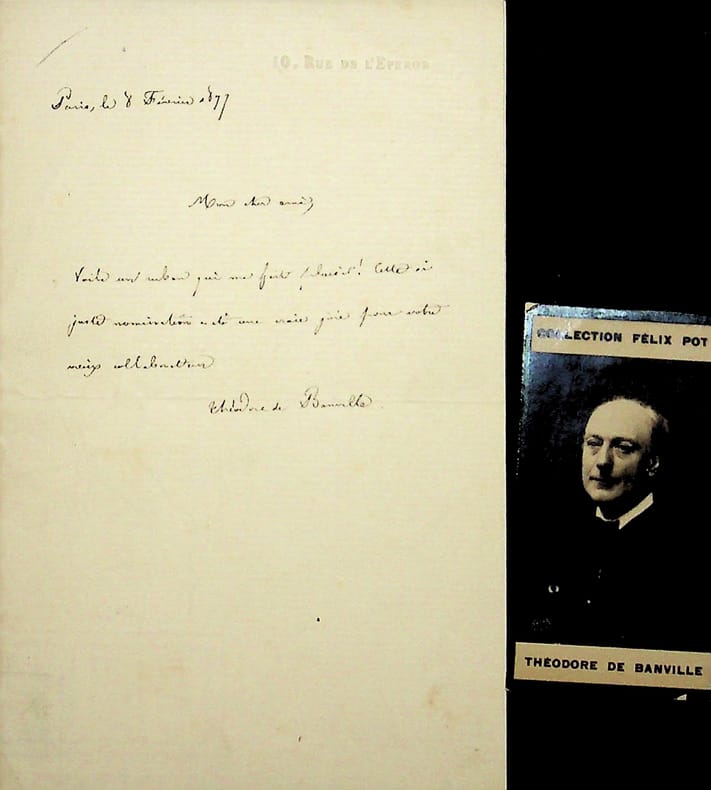 10, RUE DE L'EPERON
Paris, le 8 Février 1877
Mon cher ami,
Voilà un ruban qui me fait plaisir! Cette si
juste nomination a été une vraie joie pour votre
vieux collaborateur
Théodore de Banville.
COLLECTION FÉLIX POT
THÉODORE DE BANVILLE